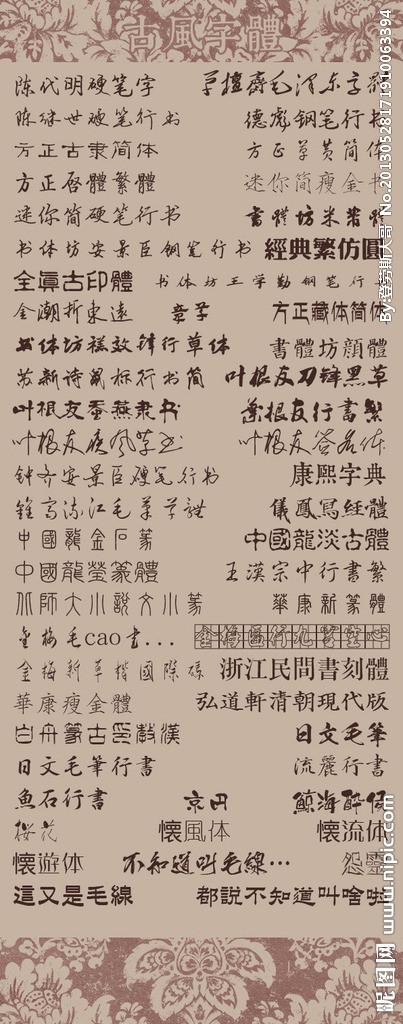 古風字體
陈代明硬笔字 草檀斋毛泽东字体
陈继世硬笔行书 德彪钢笔行书
方正古隶简体 方正草黄简体
方正启體繁體 迷你简瘦金书
迷你简硬笔行书 書體坊米芾體
书体坊安景臣钢笔行书 經典繁仿圓
全真古印體 书体坊王学勤钢笔行书
金潮折東遠 章草 方正藏体简体
书体坊禚效锋行草体 書體坊顔體
苏新诗鼠标行书简 叶根友刀锋黑草
叶根友蚕燕隶书 葉根友行書繁
叶根友疾风草书 叶根友签名体
钟齐安景臣硬笔行书 康熙字典
鍾齊流江毛筆草體 儀鳳寫經體
中國龍金石篆 中國龍淡古體
中國龍瑩篆體 王漢宗中行書繁
北師大小說文小篆 華康新篆體
金梅毛cao书...
金梅新草楷國際碼 浙江民間書刻體
華康瘦金體 弘道軒清朝現代版
白舟篆古印教漢 日文毛筆
日文毛筆行書 流麗行書
魚石行書 京円 鯨海酔侯
桜花 懐風体 懐流体
懐遊体 不知道叫毛線... 怨靈
這又是毛線 都説不知道叫啥啦
By:登劳斯大哥 No.20130528171910063394
昵图网 www.nipic.com